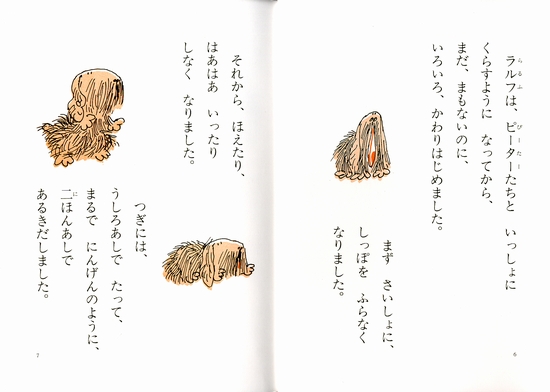 ラルフは、ピーターたちと いっしょに
くらすように なってから、
まだ、まもないのに、
いろいろ、かわりはじめました。
まず さいしょに、
しっぽを ふらなく
なりました。
6
それから、ほえたり、
はあはあ いったり
しなく なりました。
つぎには、
うしろあしで たって、
まるで にんげんのように、
二ほんあしで
あるきだしました。
7
らるふ
ぴーたー
に